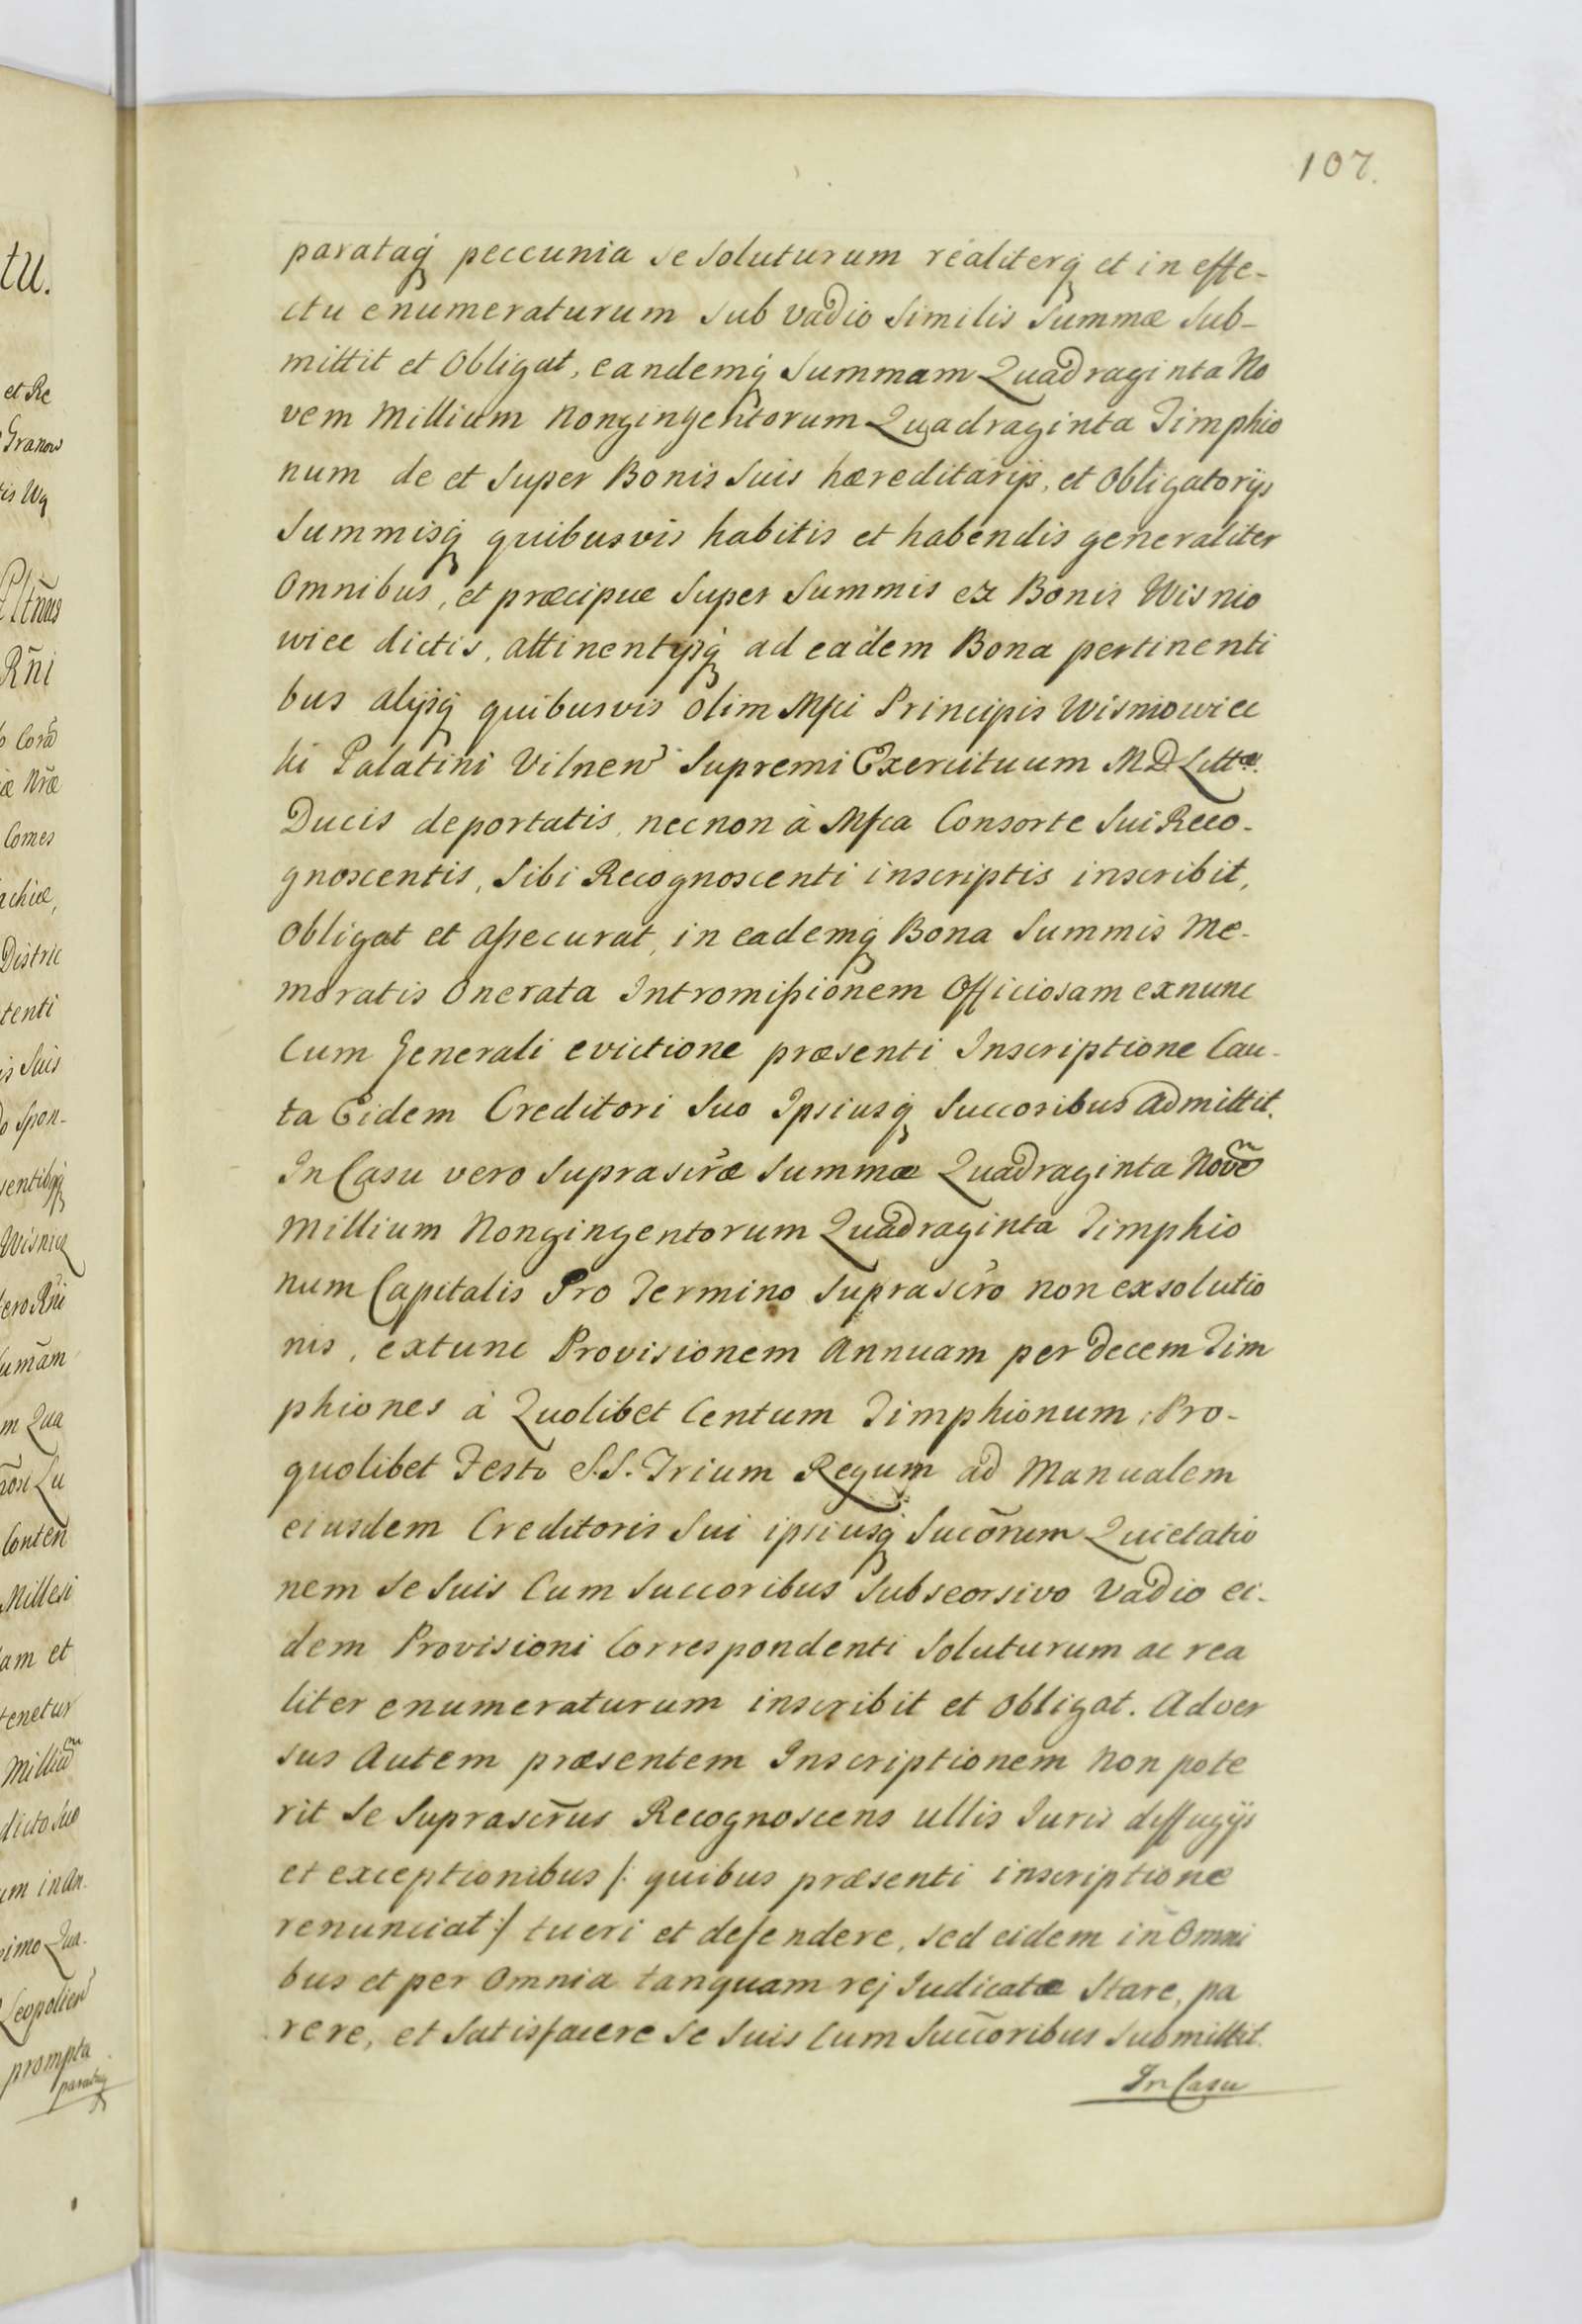 107.
parataq́ peccunia se Soluturum realiterq́ et in effe-
ctu enumeraturum Sub vadio Similis Summæ Sub-
mittit et Obligat, eandemq́ Summam Quadraginta No
vem Millium Nongingentorum Quadraginta Timphio
num de et Super Bonis Suis hæreditarijs, et Obligatorijs
Summisq́ quibusvis habitis et habendis generaliter
Omnibus, et præcipue Super Summis ex Bonis Wisnio
wiec dictis, attinentijsq́ ad eadem Bona pertinenti
bus alijsq́ quibusvis olim Mfci Principis Wisniowiec
ki Palatini Vilnen̄ Supremi Exercituum M D Littæ.
Ducis deportatis, necnon à Mfca Consorte Sui Reco-
gnoscentis, Sibi Recognoscenti inscriptis inscribit,
Obligat et assecurat, in eademq́ Bona Summis Me-
moratis Onerata Intromissionem Officiosam exnunc
Cum Generali evictione præsenti Inscriptione Cau-
ta Eidem Creditori Suo Ipsiusq́ Succoribus admittit.
In Casu vero Suprascr̃æ Summæ Quadraginta Novẽ
Millium Nongingentorum Quadraginta Timphio
num Capitalis Pro Termino Suprascr̃o non exsolutio
nis, extunc Provisionem Annuam per decem Tim
phiones à Quolibet Centum Timphionum, Pro-
quolibet Festo S.S. Trium Regum ad Manualem
eiusdem Creditoris Sui ipsiusq́ Sucõrum Quietatio
nem Se Suis Cum Succoribus Subseorsivo Vadio ei-
dem Provisioni Correspondenti Soluturum ac rea
liter enumeraturum inscribit et Obligat. Adver
sus Autem præsentem Inscriptionem Non pote
rit Se Suprascr̃us Recognoscens ullis Iuris diffugijs
et exceptionibus /: quibus præsenti inscriptione
renunciat :/ tueri et defendere, sed eidem in Omni
bus et per Omnia tanquam rej Iudicatæ Stare, pa
rere, et Satisfacere Se Suis Cum Succ̃oribus Submittit.
In Casu
tu.
et Re
Granow
tis Wg
Rñi
Comes
achiæ,
Distric
tenti
is Suis
o Spon-
Wisnic
m Qua
Conten̄
Millesi
am et
tenetur
Milliũ
dicto Suo
um in An-
simo Qua-
Leopolien̄
prompta
parataq́